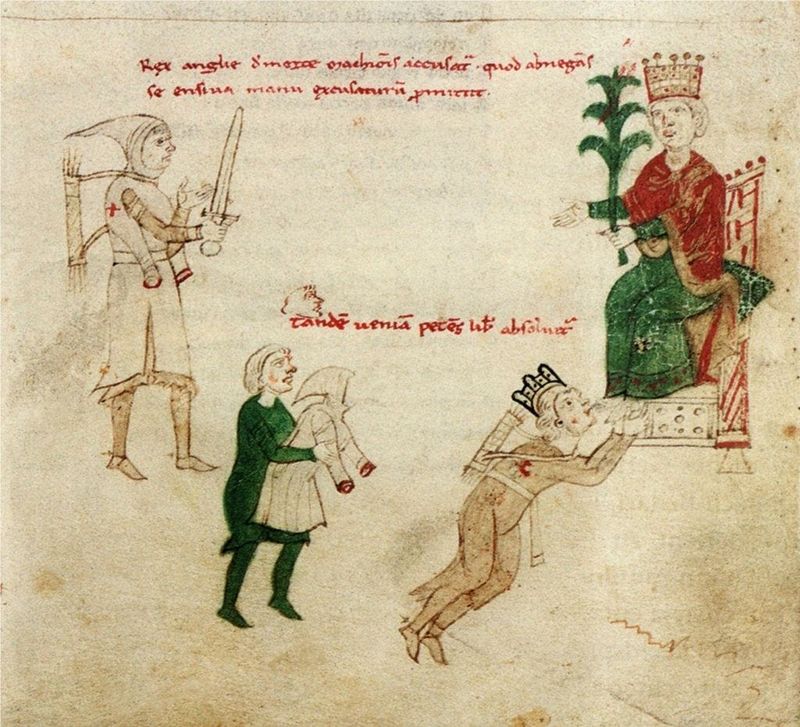 Rex anglie d' morte marchionis accusat᷑. quod abnegans
se ensiua manu excusaturū promittit.
tandē ueniā petēs lib̄ absoluit᷑